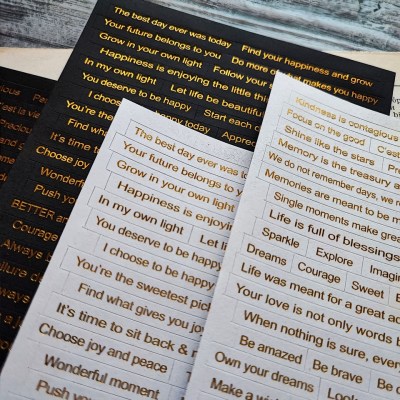 The best day ever was today Find your happiness and grow
Your future belongs to you Do more of what makes you happy
Grow in your own light Follow your
Happiness is enjoying the little thi
In my own light Let life be beautiful
You deserve to be happy Start each
I choose to be happy today Apprec
You're the
Find what
It's time to
Choose joy
Wonderful
Push you
BETTER an
Courage
Always b
The best day ever was today
Your future belongs to y
Grow in your own light
Happiness is enjoying
In my own light Let la
You deserve to be happy
I choose to be happy
You're the sweetest pic
Find what gives you jo
It's time to sit back & r
Choose joy and peace
Wonderful moment
Push you
Kindness is contagious
Focus on the good C'est
Shine like the stars Pr
Memory is the treasury a
We do not remember days, we re
Memories are meant to be m
Single moments make grea
Life is full of blessings
Sparkle Explore Imagin
Dreams Courage Sweet
Life was meant for a great ad
Your love is not only words b
When nothing is sure, every
Be amazed Be brave Be
Own your dreams Look
Make a wi